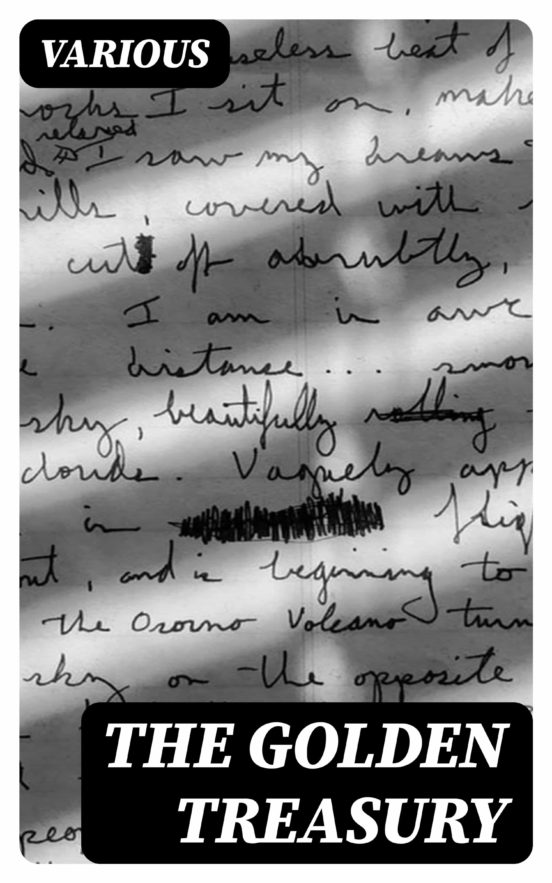 VARIOUS
useless beat of
rocks I sit on, make
relaxed
I saw my dreams
hills, covered with
cut off abruptly,
. I am in awe
distance.... smo
sky, beautifully rolling
clouds. Vaguely app
in
out, and is beginning to
the Osorno Volcano turn
sky on the opposite
THE GOLDEN
TREASURY
peo